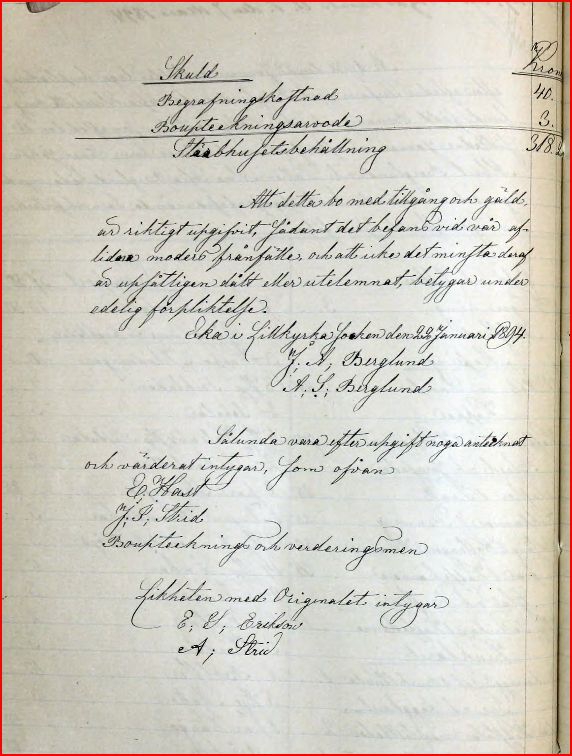 Kron
Skuld
Begrafningskostnad 40.
Bouppteckningsarvode 3.
Stärbhusetsbehållning 318.
Att detta bo med tillgång och gäld
är riktigt upgifvit, sådant det befans vid vår af-
lidna moders frånfälle, och att icke det minsta deraf
är upsåtligen dålt eller utelemnat, betygar under
edelig förpliktelse.
Eka i Lillkyrka Socken den 22 Januari 1894.
J. A; Berglund
A; S; Berglund
Sålunda vara efter upgift noga antecknat
och värderat intygar, som ofvan
E; Hast
J; P; Strid
Boupteeknings och verderingsmen
Likheten med Originalet intygar
E; G; Erikson
A; Strid